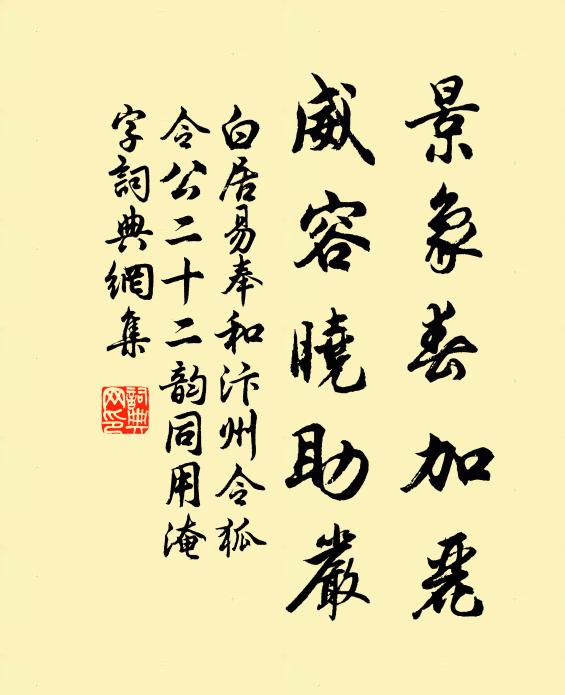 景象春加麗
威容曉助嚴
白居易奉和汴州令狐
令公二十二韵同用淹
字詞典網集
詞典
网印